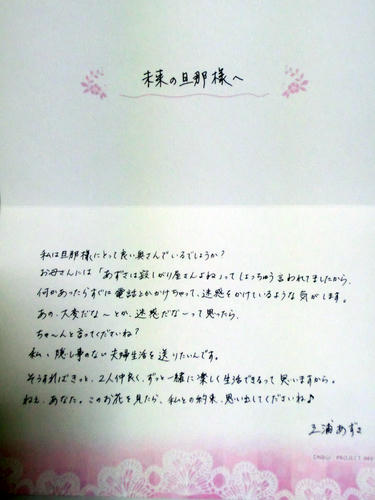 未来の旦那様へ
私は旦那様にとって良い奥さんでいるでしょうか?
お母さんには「あずさは寂しがり屋さんよね」ってしょっちゅう言われてましたから、
何かあったらすぐに電話とかかけちゃって、迷惑をかけているような気がします。
あの、大変だな〜とか、迷惑だな〜って思ったら、
ちゃ〜んと言ってくださいね?
私、隠し事のない夫婦生活を送りたいんです。
そうすればきっと、2人仲良く、ずっと一緒に楽しく生活できるって思いますから。
ねぇ、あなた。このお花を見たら、私との約束、思い出してくださいね♪
三浦あずさ
PROJECT